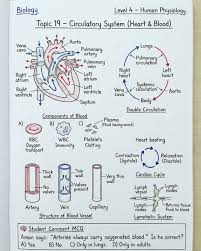 Biology
Level 4 – Human Physiology
Topic 19 – Circulatory System (Heart & Blood)
Aorta
Vena cava
Pulmonary artery
Pulmonary vein
Left atrium
Right atrium
Right ventricle
Left ventricle
Lungs
Vena cava
Aorta
Systemic circulation
Body
Double Circulation
Components of Blood
A)
B)
C)
Plasma
(Fluid background)
RBC
Oxygen transport
WBC
Immunity
Platelets
Clotting
Heart beating
Contraction (Systole)
Relaxation (Diastole)
Cardiac Cycle
Thick
Thin
Valves
Artery
Vein
Capillary
Structure of Blood Vessel
Lymph nodes
Lymph vessels
Lymphatic System
Student Comment MCQ
Aman says: "Arteries always carry oxygenated blood." Is he correct?
A) Yes B) No C) Only in lungs D) Only in adults